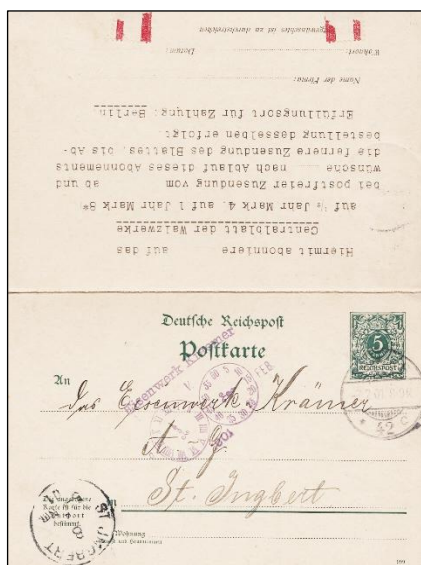 Hiermit abonniere auf das
Centralblatt der Walzwerke
auf ½ Jahr Mark 4. auf 1 Jahr Mark 8*
bei postfreier Zusendung vom ab und
wünsche nach Ablauf dieses Abonnements
die fernere Zusendung des Blattes, bis Ab-
bestellung desselben erfolgt.
Erfüllungsort für Zahlung: Berlin
Name der Firma:
Wohnort Datum:
ist zu durchstreichen
Deutsche Reichspost
Postkarte
5
REICHSPOST
An
Eisenwerk Krämer
FEB.
das Eisenwerk Krämer
A-G.
42 C
in St. Ingbert
ST. INGBERT
Die angebogene
Karte ist für die
Antwort
bestimmt.
Wohnung